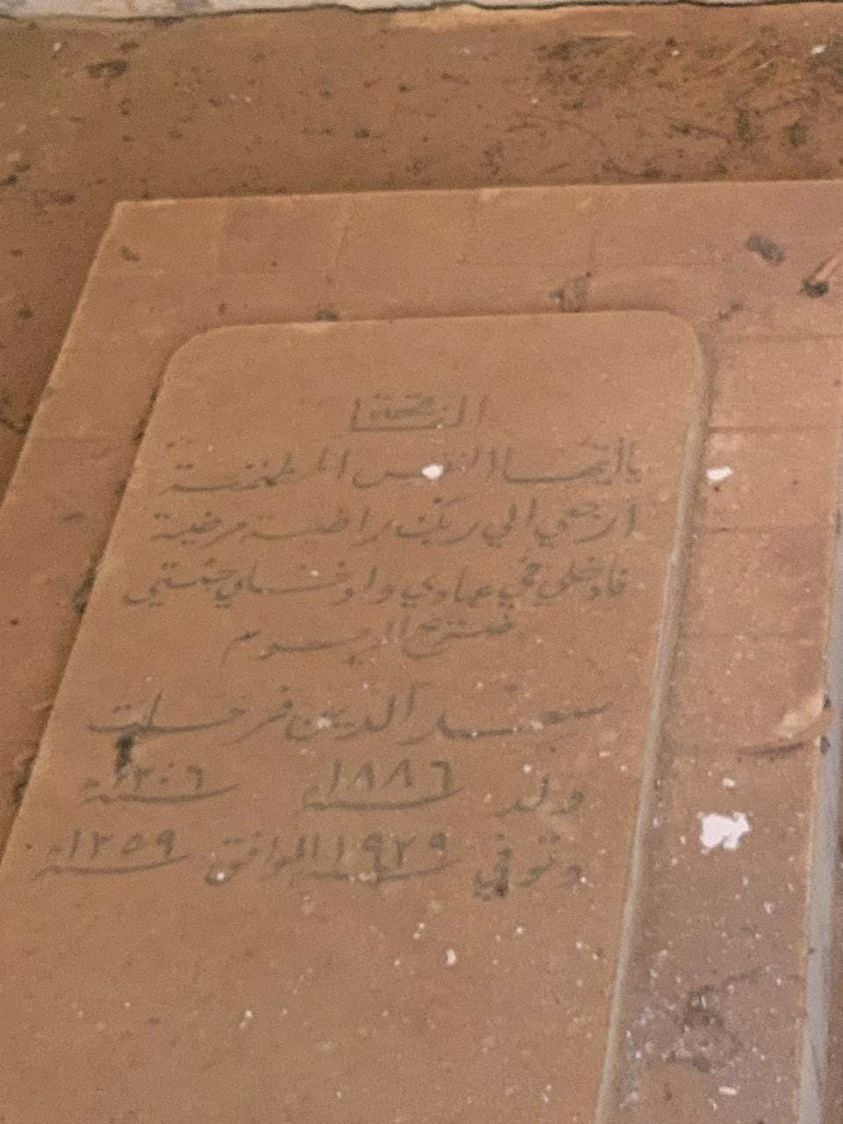 الفاتحة
يا ايتها النفس المطمئنة
ارجعي الى ربك راضية مرضية
فادخلي في عبادي وادخلي جنتي
ضريح المرحوم
سعد الدين فرحات
ولد ١٨٨٦ سنة ١٣٠٦ سنة
وتوفي ١٩٢٩ الموافق ١٣٥٩ سنة